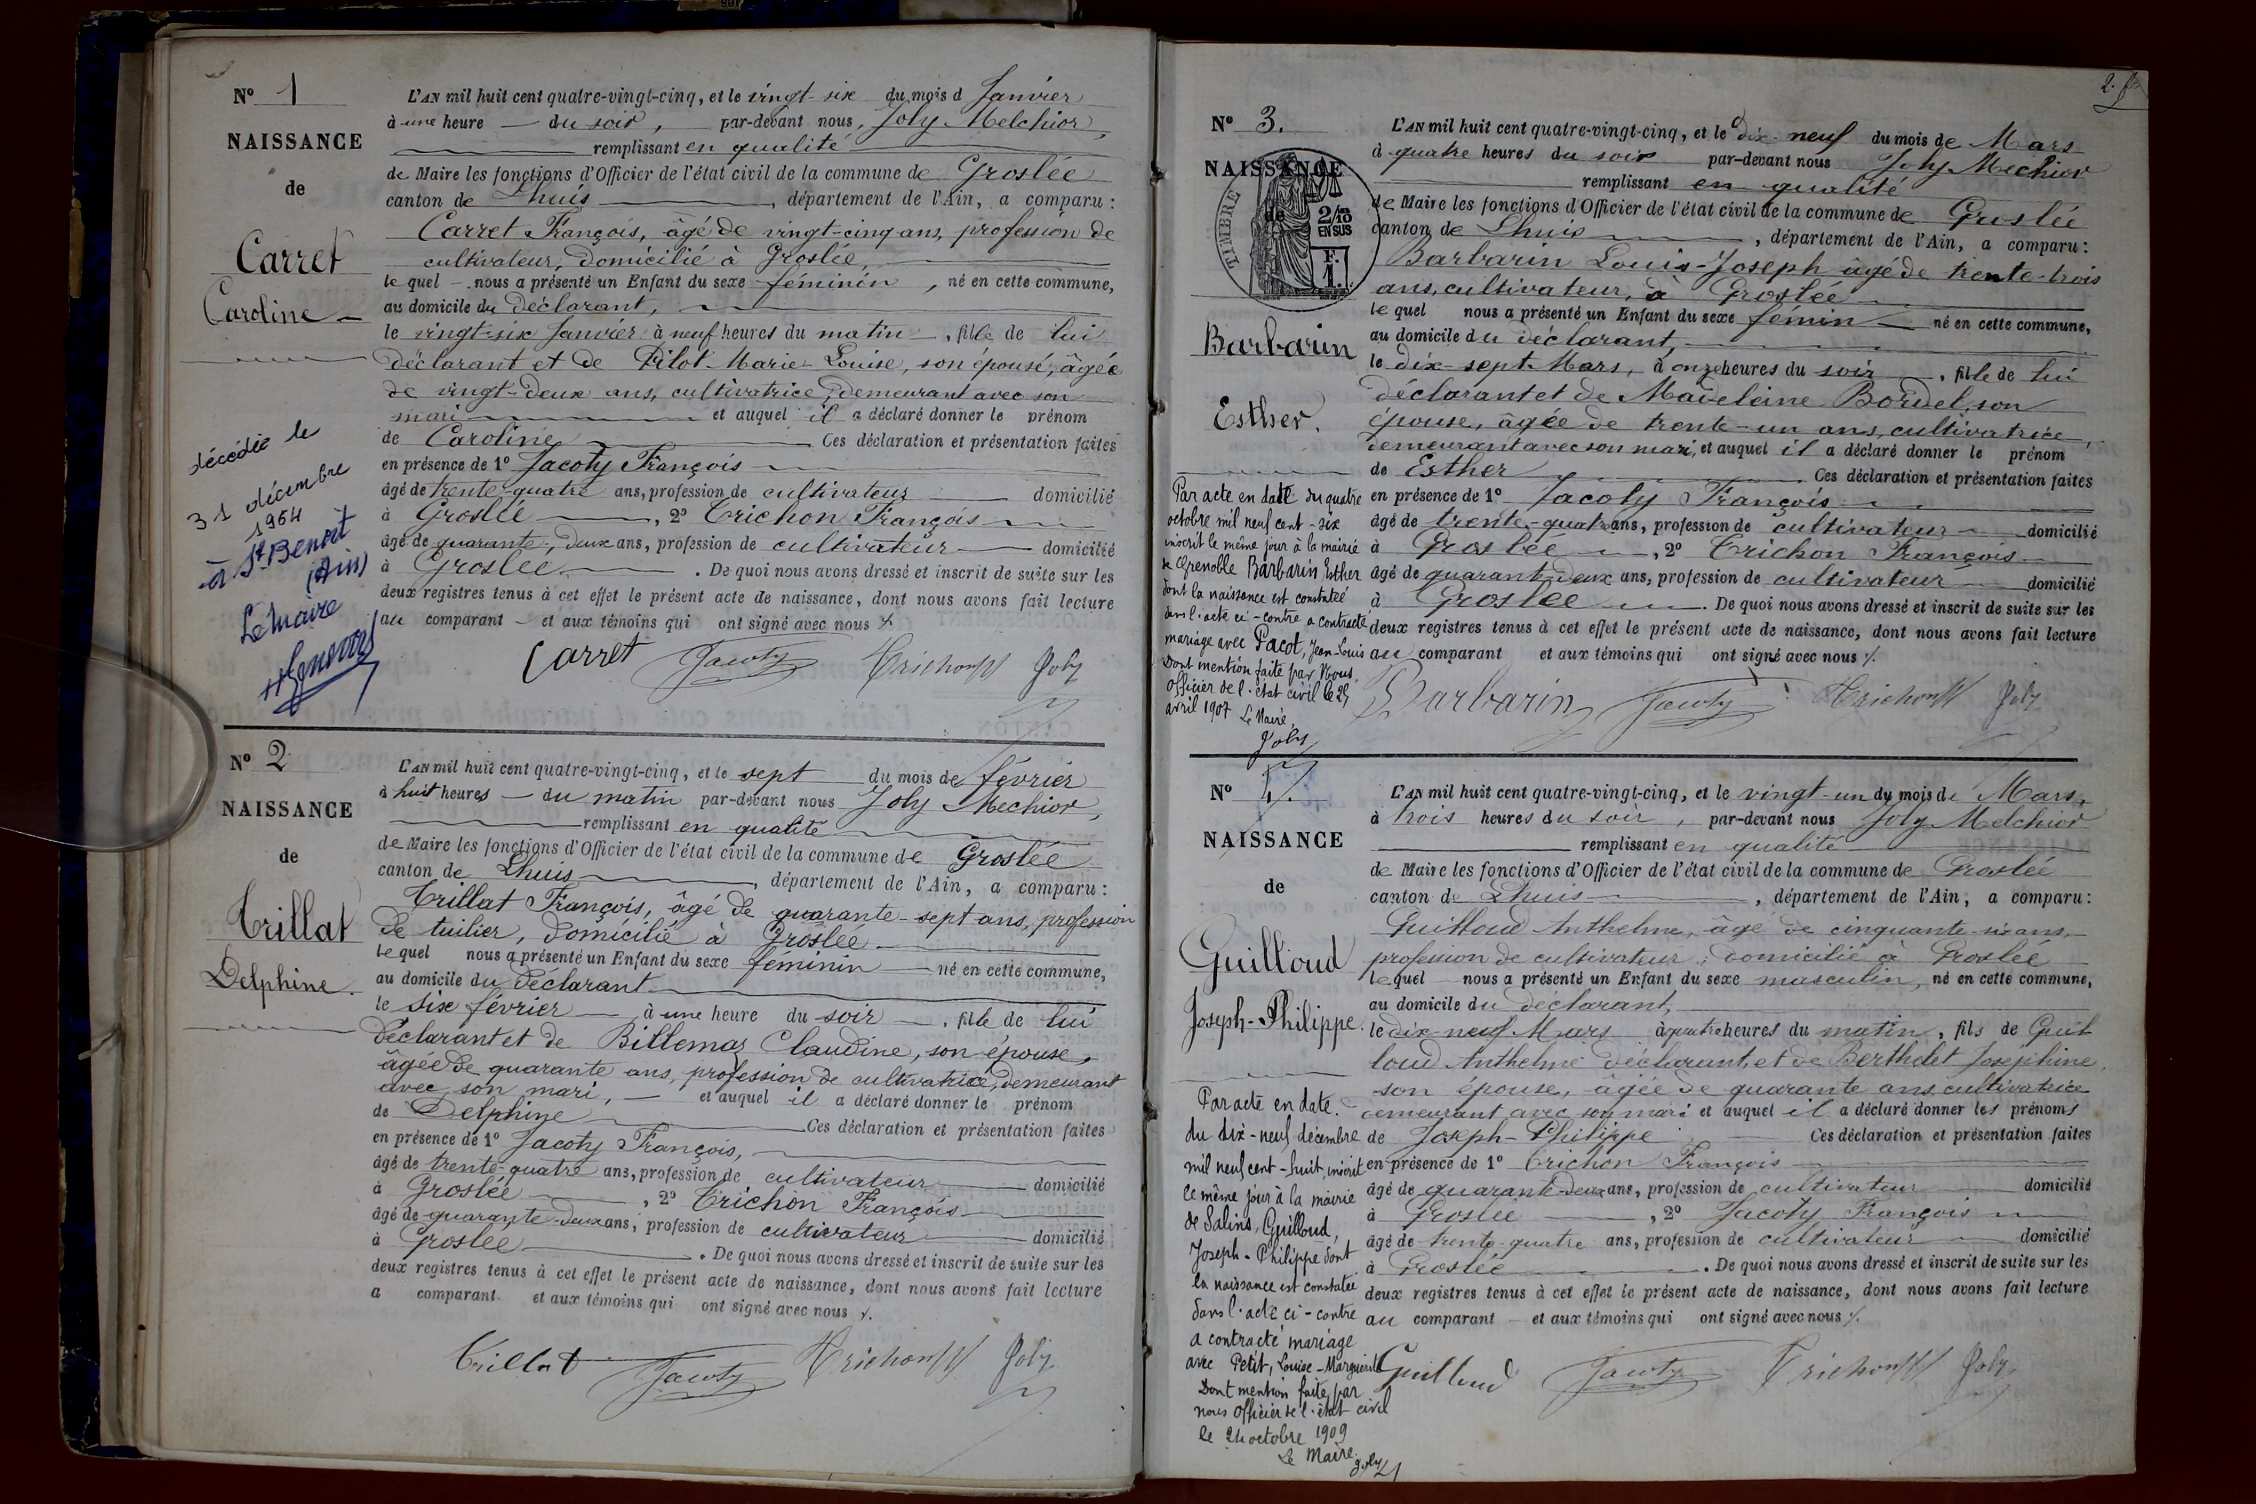 N° 1
NAISSANCE
de
Carret
Caroline
décédée le
31 décembre
1964
à St Benoit
(Ain)
Le Maire
L'AN mil huit cent quatre-vingt-cinq, et le vingt-six du mois d Janvier
à une heure du soir, par-devant nous, Joly Melchior,
remplissant en qualité
de Maire les fonctions d'Officier de l'état civil de la commune de Groslée
canton de Lhuis, département de l'Ain, a comparu :
Carret François, âgé de vingt-cinq ans, profession de
cultivateur, domicilié à Groslée,
le quel nous a présenté un Enfant du sexe féminin, né en cette commune,
au domicile du déclarant,
le vingt-six Janvier à neuf heures du matin, fille de lui
déclarant et de Pilot Marie-Louise, son épouse, âgée
de vingt-deux ans, cultivatrice, demeurant avec son
mari et auquel il a déclaré donner le prénom
de Caroline Ces déclaration et présentation faites
en présence de 1° Jacoty François
âgé de trente-quatre ans, profession de cultivateur domicilié
à Groslée, 2° Trichon François
âgé de quarante-deux ans, profession de cultivateur domicilié
à Groslée. De quoi nous avons dressé et inscrit de suite sur les
deux registres tenus à cet effet le présent acte de naissance, dont nous avons fait lecture
au comparant et aux témoins qui ont signé avec nous
Carret Jacoty Trichon Joly
N° 2
NAISSANCE
de
Trillat
Delphine.
L'AN mil huit cent quatre-vingt-cinq, et le sept du mois de février
à huit heures du matin par-devant nous Joly Mechior,
remplissant en qualité
de Maire les fonctions d'Officier de l'état civil de la commune de Groslée
canton de Lhuis, département de l'Ain, a comparu :
Trillat François, âgé de quarante-sept ans, profession
de tuilier, domicilié à Groslée
le quel nous a présenté un Enfant du sexe féminin né en cette commune,
au domicile du déclarant
le six février à une heure du soir, fille de lui
déclarant et de Billemaz Claudine, son épouse,
âgée de quarante ans, profession de cultivatrice, demeurant
avec son mari, et auquel il a déclaré donner le prénom
de Delphine Ces déclaration et présentation faites
en présence de 1° Jacoty François,
âgé de trente-quatre ans, profession de cultivateur domicilié
à Groslée, 2° Trichon François
âgé de quarante-deux ans, profession de cultivateur domicilié
à Groslée. De quoi nous avons dressé et inscrit de suite sur les
deux registres tenus à cet effet le présent acte de naissance, dont nous avons fait lecture
a comparant et aux témoins qui ont signé avec nous
Trillat Jacoty Trichon Joly
2.
N° 3.
NAISSANCE
de
TIMBRE
2/10
EN SUS
F.
1.
Barbarin
Esther.
Par acte en date du quatre
octobre mil neuf cent-six
inscrit le même jour à la mairie
de Grenoble Barbarin Esther
dont la naissance est constatée
dans l'acte ci-contre a contracté
mariage avec Pacot, Jean-Louis
Dont mention faite par Nous,
Officier de l'état civil le 25
avril 1907 Le Maire,
Joly
L'AN mil huit cent quatre-vingt-cinq, et le dix-neuf du mois de Mars
à quatre heures du soir par-devant nous Joly Mechior
remplissant en qualité
de Maire les fonctions d'Officier de l'état civil de la commune de Groslée
canton de Lhuis, département de l'Ain, a comparu :
Barbarin Louis-Joseph âgé de trente-trois
ans, cultivateur, à Groslée
le quel nous a présenté un Enfant du sexe fémin né en cette commune,
au domicile du déclarant,
le dix-sept Mars, à onze heures du soir, fille de lui
déclarant et de Madeleine Bordel, son
épouse, âgée de trente-un ans, cultivatrice,
demeurant avec son mari, et auquel il a déclaré donner le prénom
de Esther Ces déclaration et présentation faites
en présence de 1° Jacoty François
âgé de trente-quatre ans, profession de cultivateur domicilié
à Groslée, 2° Trichon François
âgé de quarante-deux ans, profession de cultivateur domicilié
à Groslée. De quoi nous avons dressé et inscrit de suite sur les
deux registres tenus à cet effet le présent acte de naissance, dont nous avons fait lecture
au comparant et aux témoins qui ont signé avec nous
Barbarin Jacoty Trichon Joly
N° 4.
NAISSANCE
de
Guilloud
Joseph-Philippe.
Par acte en date.
du dix-neuf décembre
mil neuf cent-huit, inscrit
le même jour à la mairie
de Salins, Guilloud,
Joseph-Philippe dont
la naissance est constatée
dans l'acte ci-contre
a contracté mariage
avec Petit, Louise-Marguerite
Dont mention faite par
nous Officier de l'état civil
le 24 octobre 1909
Le Maire.
Joly
L'AN mil huit cent quatre-vingt-cinq, et le vingt-un du mois de Mars,
à trois heures du soir, par-devant nous Joly Melchior
remplissant en qualité
de Maire les fonctions d'Officier de l'état civil de la commune de Groslée
canton de Lhuis, département de l'Ain, a comparu :
Guilloud Anthelme, âgé de cinquante-six ans,
profession de cultivateur, domicilié à Groslée
le quel nous a présenté un Enfant du sexe masculin, né en cette commune,
au domicile du déclarant,
le dix-neuf Mars à quatre heures du matin, fils de Guil
loud Anthelme déclarant, et de Berthelet Joséphine,
son épouse, âgée de quarante ans, cultivatrice
demeurant avec son mari et auquel il a déclaré donner les prénoms
de Joseph-Philippe Ces déclaration et présentation faites
en présence de 1° Trichon François
âgé de quarante-deux ans, profession de cultivateur domicilié
à Groslée, 2° Jacoty François
âgé de trente-quatre ans, profession de cultivateur domicilié
à Groslée. De quoi nous avons dressé et inscrit de suite sur les
deux registres tenus à cet effet le présent acte de naissance, dont nous avons fait lecture
au comparant et aux témoins qui ont signé avec nous
Guilloud Jacoty Trichon Joly